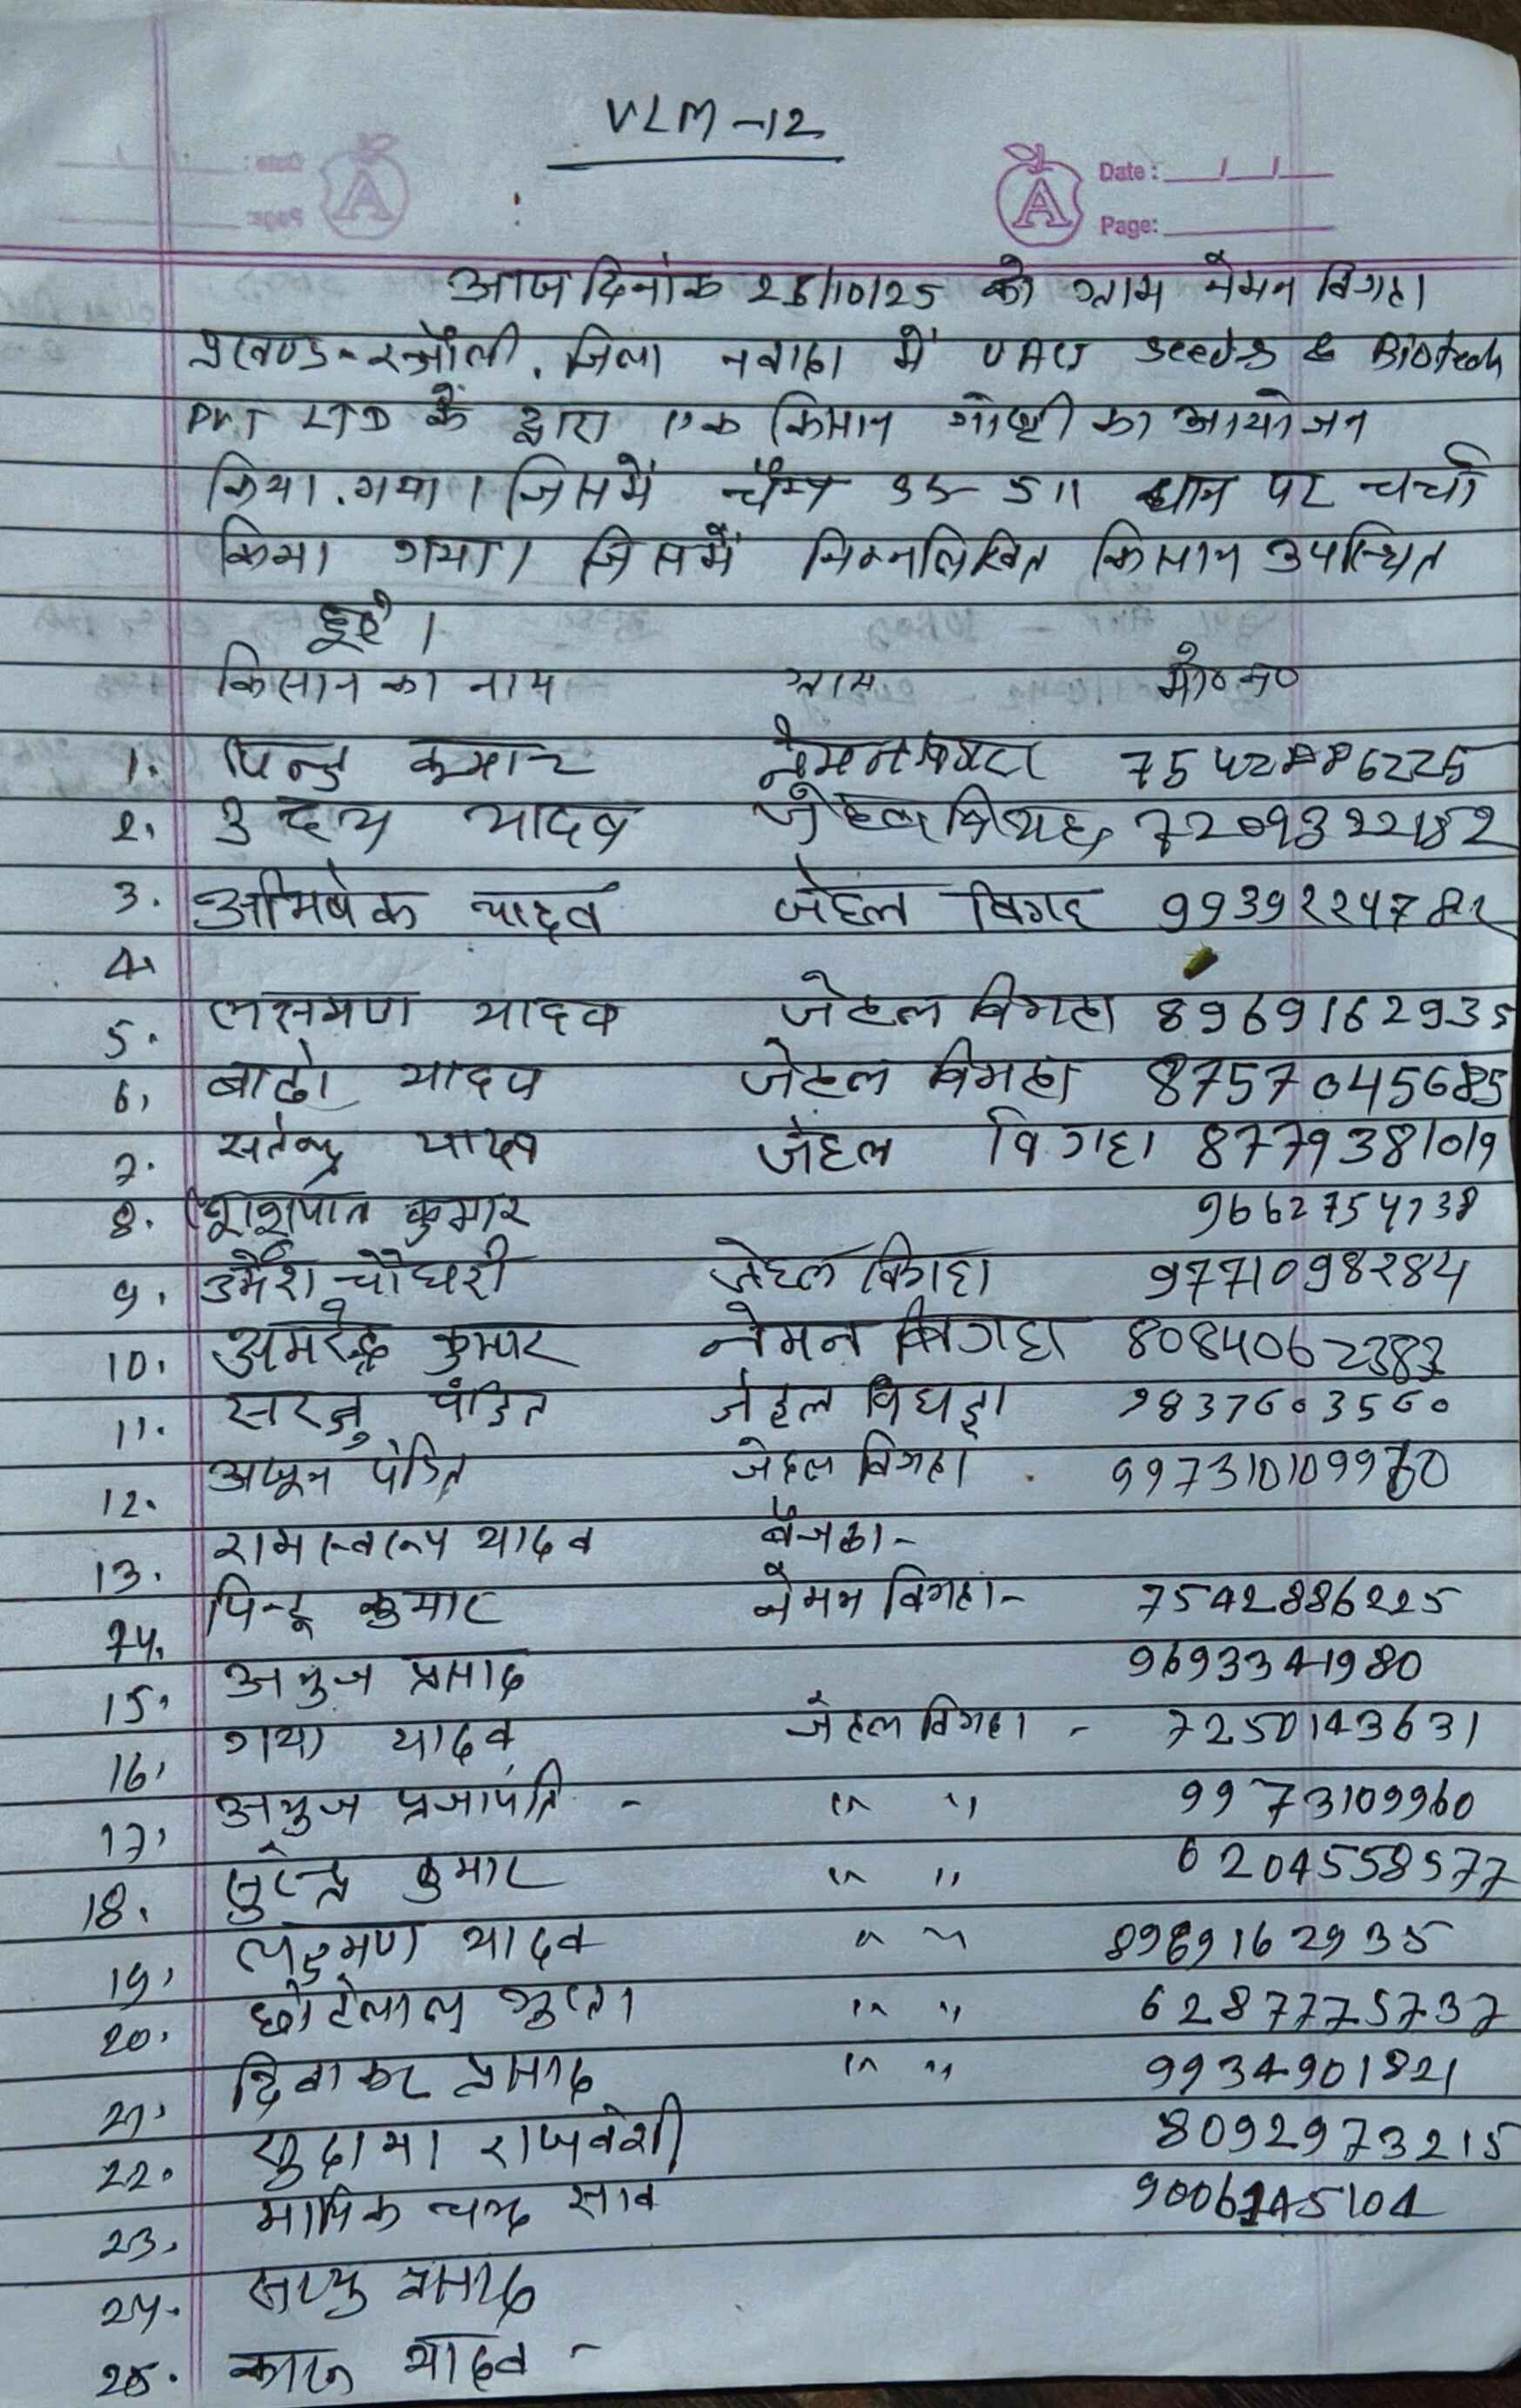 VLM -12
Date : __/__/__
Page:
आज दिनांक 25/10/25 को ग्राम नेमन विगहा
प्रखण्ड - रजौली, जिला नवादा में seeds & Biotech
PVT LTD के द्वारा एक किसान गोष्टी का आयोजन
किया गया। जिसमें चैम्प 35- 511 धान पर चर्चा
किया गया। जिसमें निम्नलिखित किसान उपस्थित
हुए।
किसान का नाम ग्राम मो० न०
1. पिन्टु कुमार नेमन विगहा 7542886225
2. उदय यादव जेहल बिगहा 7209322182
3. अभिषेक यादव जेहल बिगहा
4.
लक्षमण यादव जेहल विगहा 8969162935
5.
बाढो यादव जेहल विगहा 8757045685
6,
सतेन्द्र यादव जेहल विगहा 8779381019
7.
कुमार
8.
उमेश चौधरी जेहल विगहा 9771098284
9.
अमरेन्द्र कुमार नेमन बिगहा
10.
सरजु पंडित जेहल विघहा 9837603560
11.
अर्जुन पंडित जेहल विगहा
12.
रामस्वरूप यादव -
13.
पिन्टू कुमार नेमन विगहा - 7542886225
14.
अनुज प्रसाद 9693341980
15.
गया यादव जेहल विगहा - 7250143631
16.
अनुज प्रजापति - " " 9973109960
17.
सुरेन्द्र कुमार " " 6204558577
18.
लक्ष्मण यादव " " 8969162935
19.
छोटेलाल गुप्ता " " 6287775737
20.
दिवाकर प्रसाद " " 9934901821
21.
सुदामा राजवंशी 8092973215
22.
माणिक चन्द्र साव
23.
प्रसाद
24.
कारू यादव -
25.